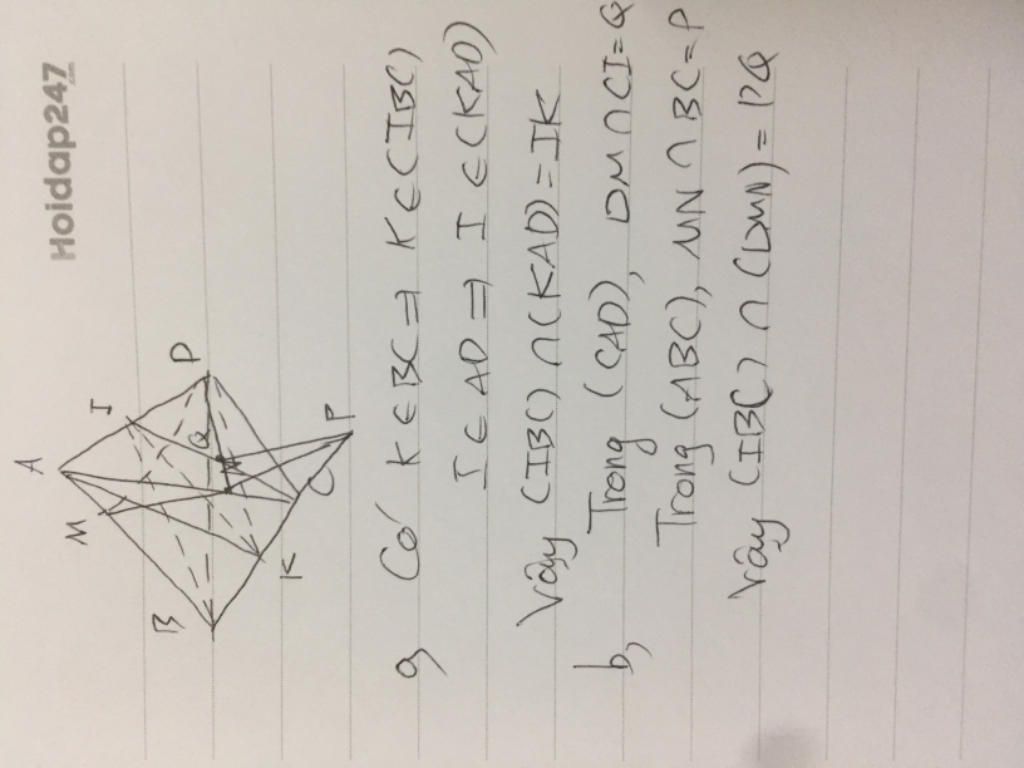 Hoidap247.com
A
M
I
B
D
Q
N
K
C
P
a, Có K ∈ BC ⇒ K ∈ (IBC)
I ∈ AD ⇒ I ∈ (KAD)
Vậy (IBC) ∩ (KAD) = IK
b, Trong (CAD), DM ∩ CI = Q
Trong (ABC), MN ∩ BC = P
Vậy (IBC) ∩ (DMN) = PQ